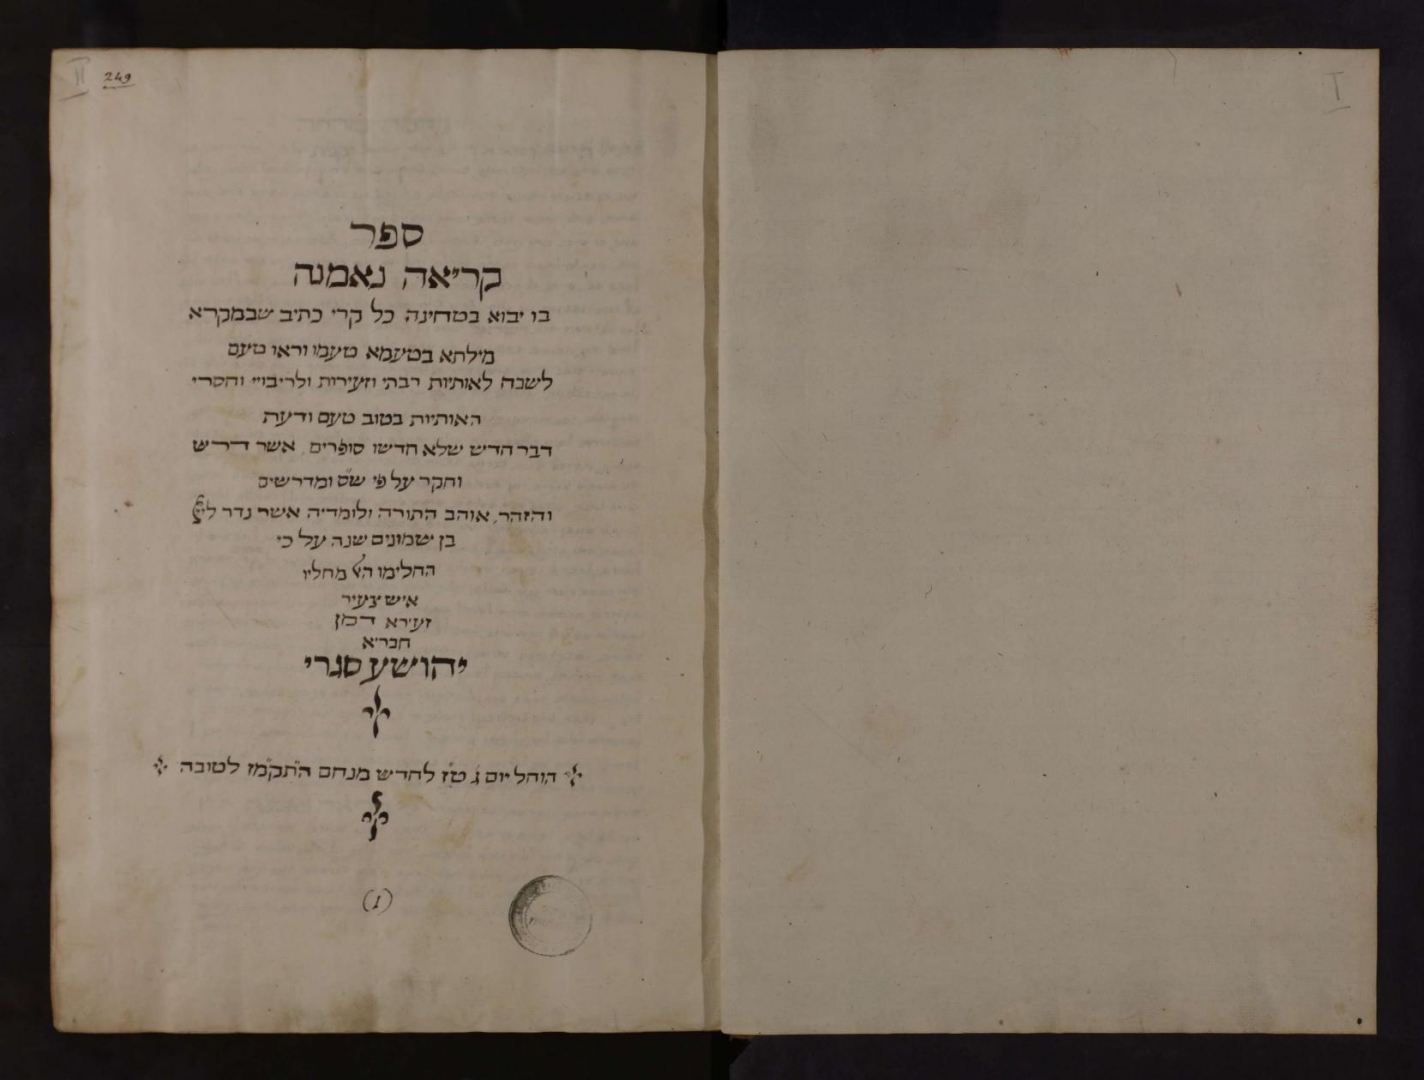 I
II 249
ספר
קריאה נאמנה
בו יבוא בטחינה כל קרי כתיב שבמקרא
מילתא בטעמא טעמו וראו טעם
לשבח לאותיות רבתי וזעירות ולריבויי וחסרי
האותיות בטוב טעם ודעת
דבר חדש שלא חדשו סופרים, אשר דרש
וחקר על פי ש"ס ומדרשים
והזהר, אוהב התורה ולומדיה אשר נדר
בן שמונים שנה על כי
החלימו מחליו
איש צעיר
זעירא דמן
חבריא
יהושע סגרי
הוחל יום ג ט"ז לחדש מנחם התקמ"ז לטובה
(1)